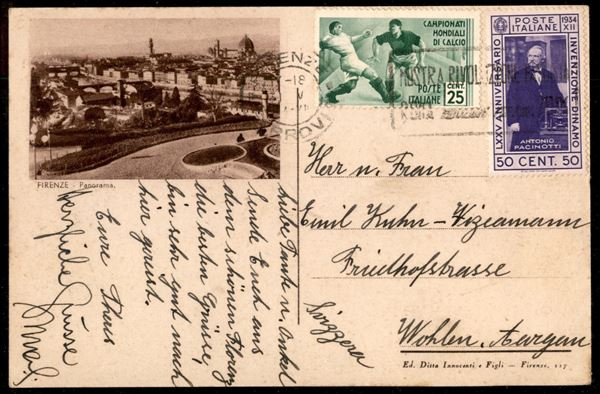 FIRENZE - Panorama.
CAMPIONATI
MONDIALI
DI CALCIO
POSTE
ITALIANE
CENT.
25
1934
XII
POSTE
ITALIANE
LXXV ANNIVERSARIO
INVENZIONE DINAMO
ANTONIO
PACINOTTI
50 CENT. 50
MOSTRA RIVOLUZIONE
ROMA
Liebe Tante u. Onkel
Sende Euch aus
dem schönen Florenz
die besten Grüsse,
bin sehr gut nach
hier gereist.
Eure
Herzliche Grüsse
Herr u. Frau
Emil Kuhn-Wizeamann
Friedhofstrasse
Svizzera
Wohlen, Aargau
Ed. Ditta Innocenti e Figli - Firenze, 127